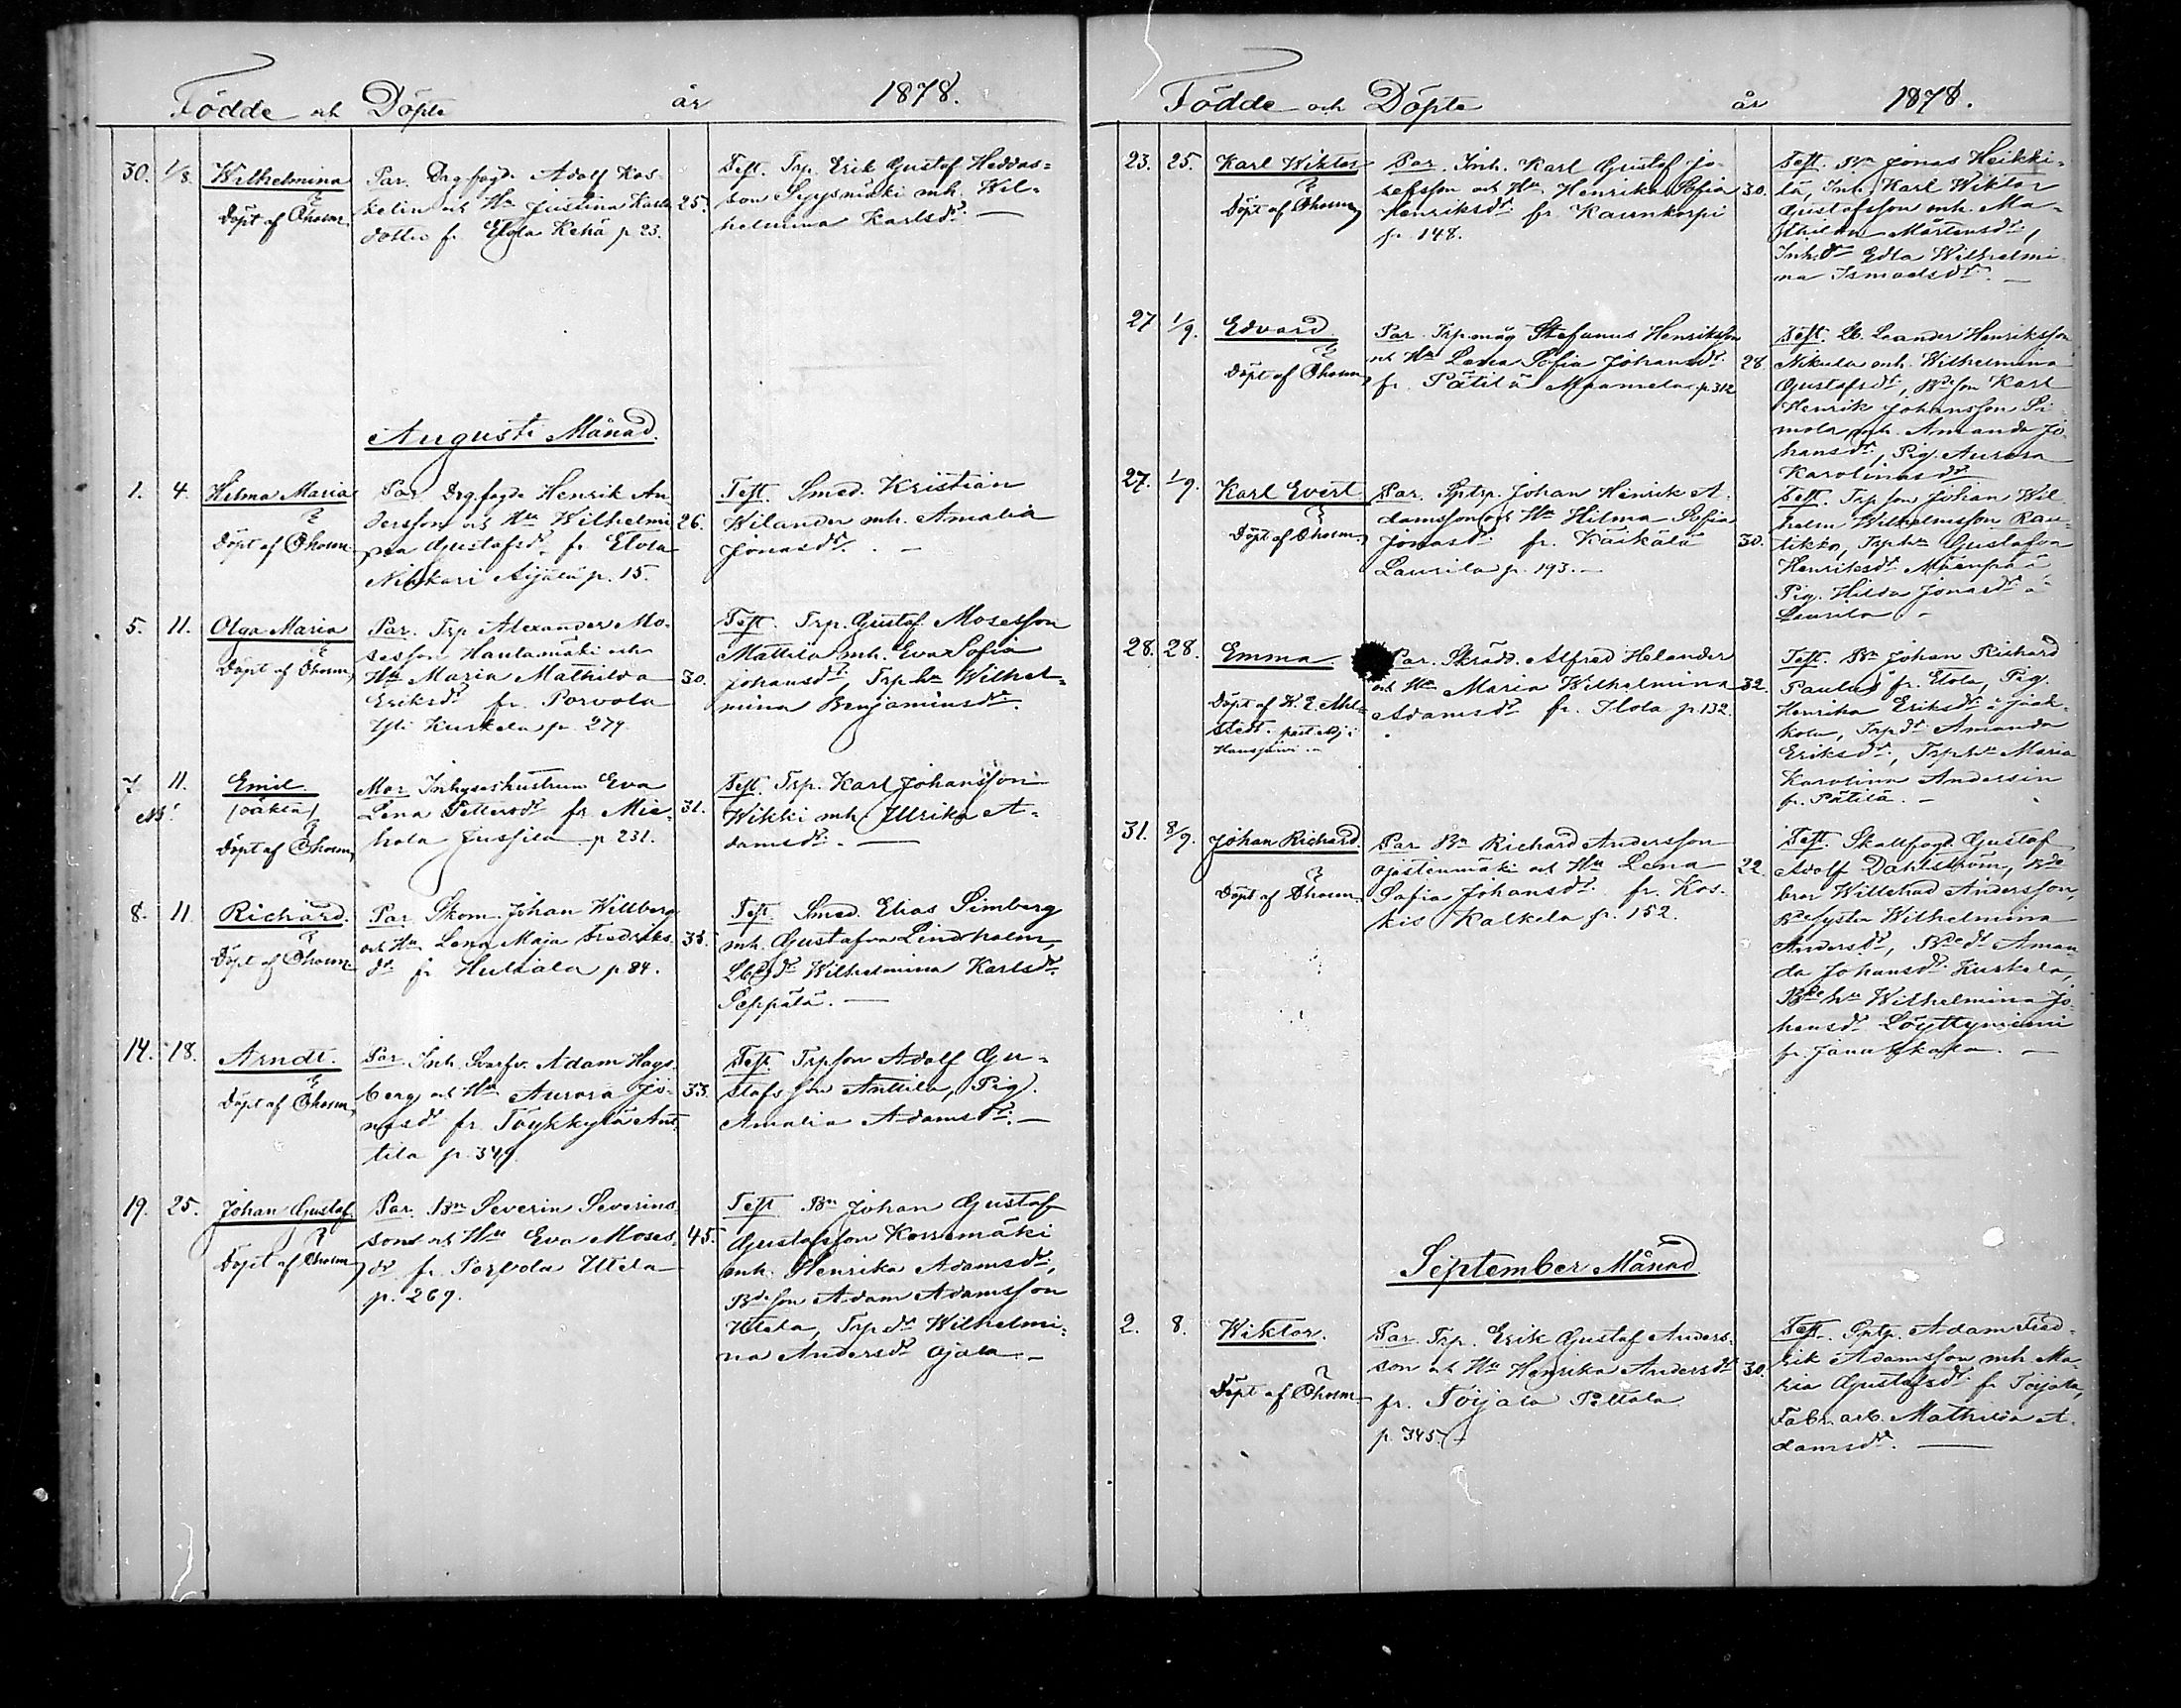 Födde och Döpte år 1878.
30. 1/8. Wilhelmina
Döpt af Öholm
Par. Drg.fogde Adolf Kos-
kelin och Hu Justina Karls 25.
dotter fr. Etola Kehä p. 23.
Test. Trp. Erik Gustaf Heddas-
son Syysmäki mh. Wil-
helmina Karlsdr. —
Augusti Månad.
1. 4. Hilma Maria
Döpt af Öholm
Par. Drg.fogde Henrik An
dersson och Hu Wilhelmi 26.
na Gustafsdr. fr. Etola
Nihkari Äijälä p. 15.
Test. Smed. Kristian
Wilander mh. Amalia
Jonasdr. —
5. 11. Olga Maria
Döpt af Öholm
Par. Trp Alexander Mo-
sesson Hautamäki och
Hu Maria Mathilda 30.
Eriksdr fr. Porvola
Yli Kurkela p. 279.
Test. Trp. Gustaf Mosesson
Mattila mh. Eva Sofia
Johansdr, Trp.hu Wilhel-
mina Benjaminsdr.
7. 11. Emil
NB! (oäkta)
Döpt af Öholm
Mor. Inhyseshustrun Eva
Lena Pettersdr fr. Mie- 31.
hola Jussila p. 231.
Test. Trp. Karl Johansson
Wikki mh. Ulrika A-
damsdr. —
8. 11. Richard.
Döpt af Öholm
Par. Skom. Johan Willberg
och Hu Lena Maja Fredriks-
dr fr Hultiala p 84.
Test. Smed. Elias Simberg
mh. Gustafva Lindholm,
Wilhelmina Karlsdr.
Seppälä. —
14. 18. Arndt.
Döpt af Öholm
Par. Inh. Adam Hags-
berg och Hu Aurora Jo- 33.
nasdr fr. Töykkylä Ant-
tila p. 349
Test. Trpson Adolf Gu-
stafsson Anttila, Pig.
Amalia Adamsdr. —
19. 25. Johan Gustaf
Döpt af Öholm
Par. Bn Severin Severins-
son och Hu Eva Moses- 45.
dr fr. Porvola Uttela
p. 269.
Test. Bn Johan Gustaf
Gustafsson Korsemäki
mh. Henrika Adamsdr,
Bdeson Adam Adamsson
Uttela, Trp.dr Wilhelmi-
na Andersdr Ojala. —
Födde och Döpte år 1878.
23. 25. Karl Wiktor
Döpt af Öholm
Par. Inh. Karl Gustaf Jo-
sefsson och Hu Henrika Sofia 30.
Henriksdr. fr. Kaunkorpi
p. 148.
Test. Bn Jonas Heikki-
lä, Inh. Karl Wiktor
Gustafsson mh. Ma-
thilda Mårtensdr,
Inh.dr Edla Wilhelmi-
na Ismaelsdr. —
27 1/9. Edvard
Döpt af Öholm
Par. Trp.måg Stefanus Henriksson
och Hu Lena Sofia Johansdr. 28.
fr. Pätilä Maamela p. 312
Test. Lb. Leander Henriksson
Nikula mh. Wilhelmina
Gustafsdr, Bdeson Karl
Henrik Johansson Si-
mola mh. Amanda Jo-
hansdr, Pig. Aurora
Karolinasdr
27. 1/9. Karl Evert
Döpt af Öholm
Par. Sptrp. Johan Henrik A-
damsson och Hu Hilma Sofia
Jonasdr fr. Kaikala 30.
Laurila p. 193. —
Test. Trpson Johan Wil-
helm Wilhelmsson Rau-
tikko, Trphu Gustafva
Henriksdr Mäenpää
Pig. Hilda Jonasdr
Laurila —
28. 28. Emma.
Döpt af K. E. Ahl-
stedt. past. adj. i
Hausjärvi. —
Par. Skrädd. Alfred Helander
och Hu Maria Wilhelmina 32.
Adamsdr fr. Ilola p. 132.
Test. Bn Johan Richard
Paulus fr. Etola, Pig.
Henrika Eriksdr i Jack-
kola, Trpdr Amanda
Eriksdr, Trphu Maria
Karolina Andersin
fr. Pätilä. —
31. 8/9. Johan Richard.
Döpt af Öholm
Par. Bn Richard Andersson
Ojastenmäki och Hu Lena 22.
Sofia Johansdr. fr. Kos-
kis Kalkela p. 152.
Test. Skallfogd. Gustaf
Adolf Dahlström, Bde
bror Willehad Andersson,
Bdesyster Wilhelmina
Andersdr, Bdedr Aman-
da Johansdr Kurkela,
Bdehu Wilhelmina Jo-
hansdr Löyttyniemi
fr. Janakkala. —
September Månad
2. 8. Wiktor.
Döpt af Öholm
Par. Trp. Erik Gustaf Anders-
son och Hu Henrika Andersdr 30.
fr. Töijala Pettala
p. 345. —
Test. Sptp. Adam Fred-
rik Adamsson mh. Ma-
ria Gustafsdr. fr Töijala,
Fabr. arb. Mathilda A-
damsdr. —